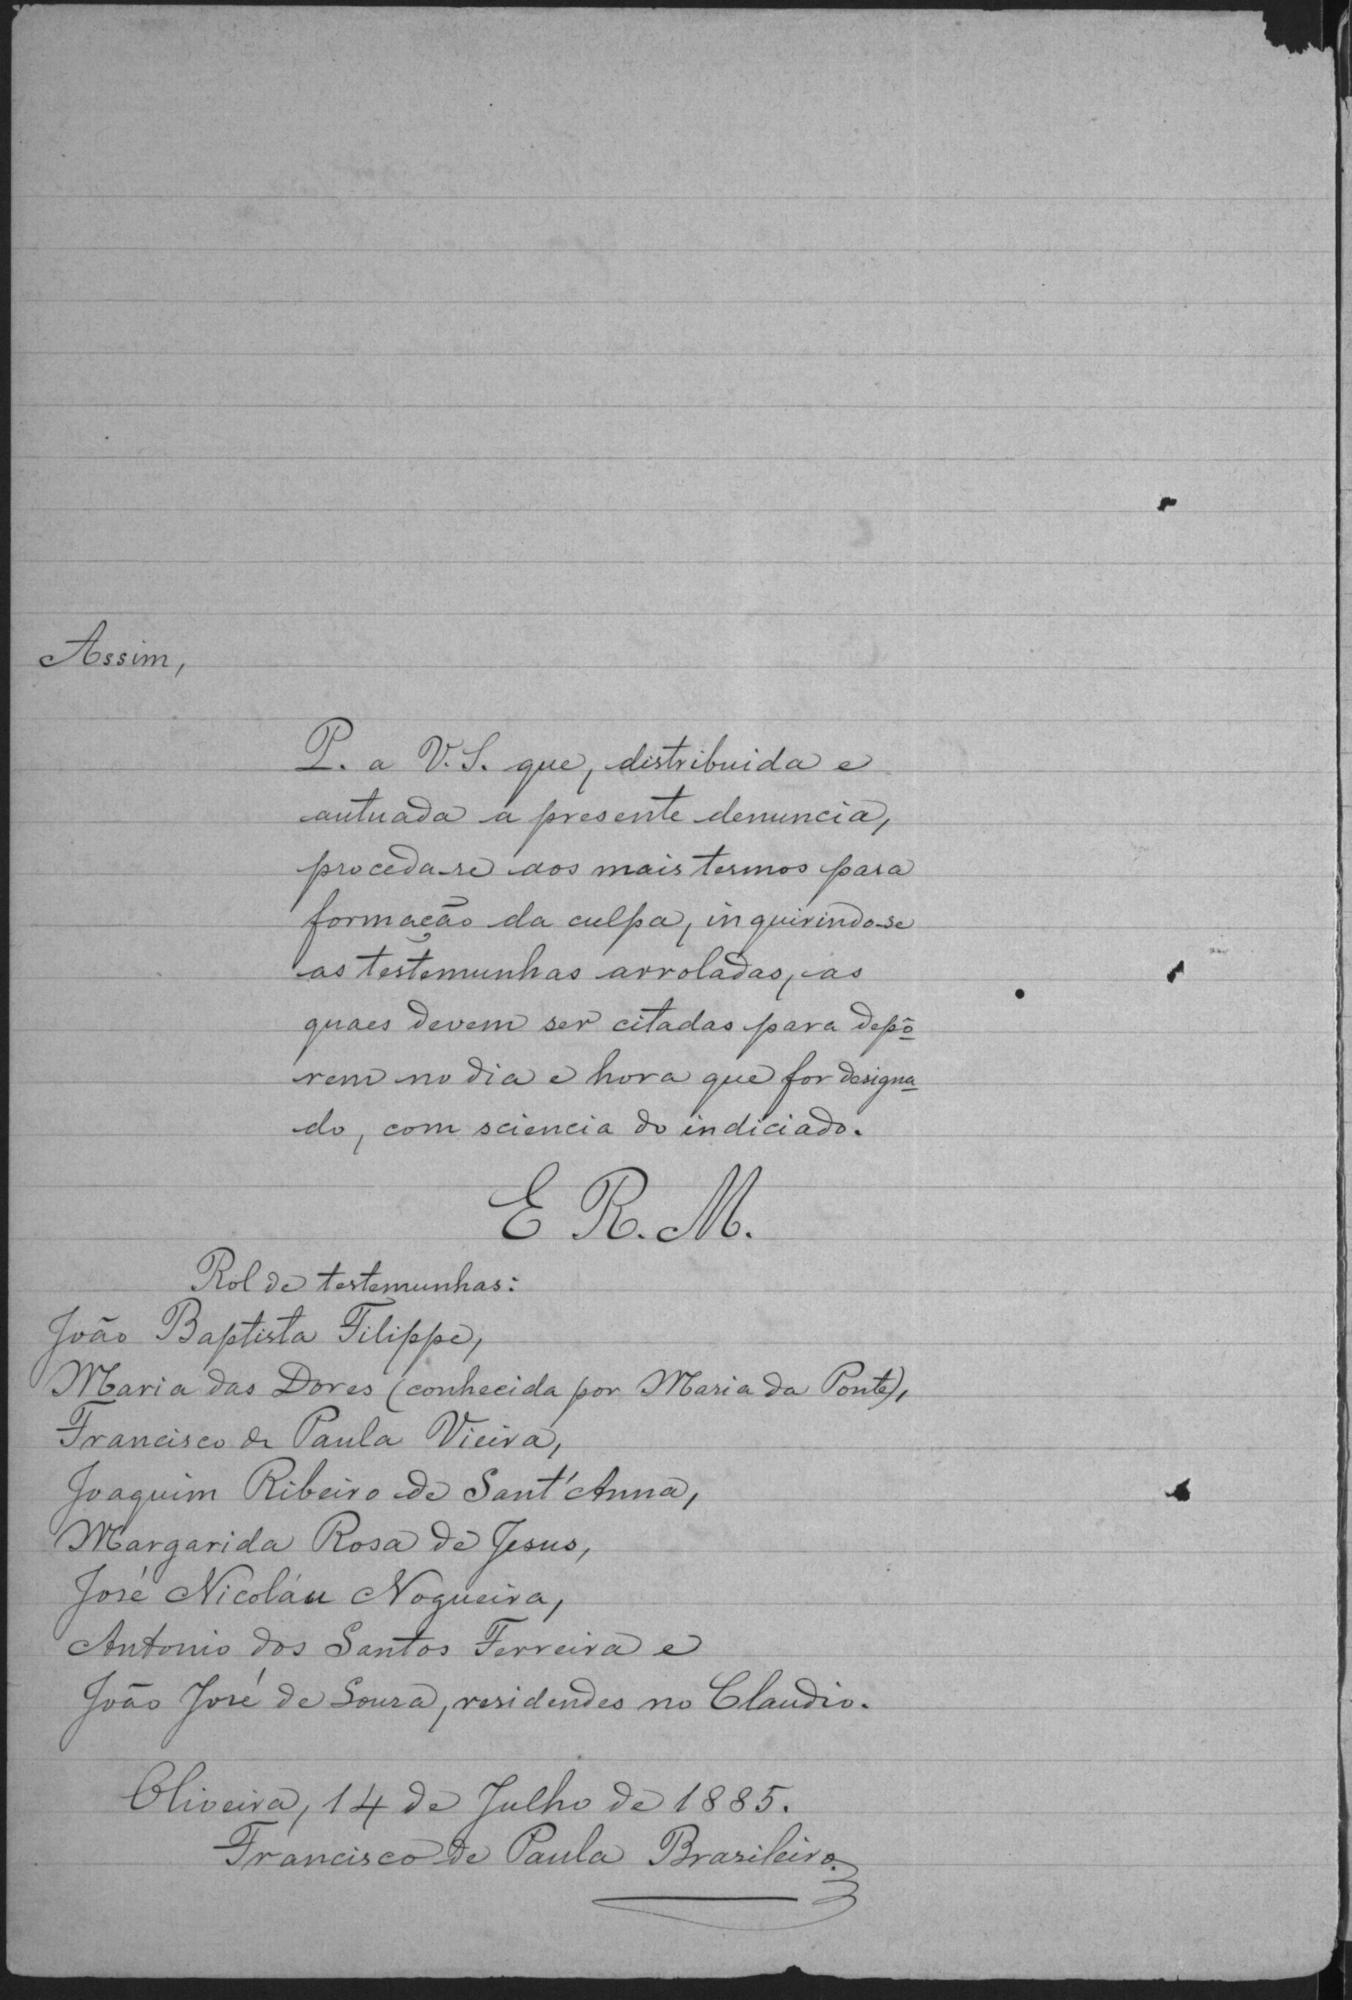 Assim,
P. a V. S. que, distribuida e
autuada a presente denuncia,
proceda-se aos mais termos para
formação da culpa, inquirindo-se
as testemunhas arroladas, as
quaes devem ser citadas para depô
rem no dia e hora que for designa
do, com sciencia do indiciado.
E R. M.
Rol de testemunhas:
João Baptista Filippe,
Maria das Dores (conhecida por Maria da Ponte),
Francisco de Paula Vieira,
Joaquim Ribeiro de Sant'Anna,
Margarida Rosa de Jesus,
José Nicoláu Nogueira,
Antonio dos Santos Ferreira e
João José de Souza, residendes no Claudio.
Oliveira, 14 de Julho de 1885.
Francisco de Paula Brasileiro.